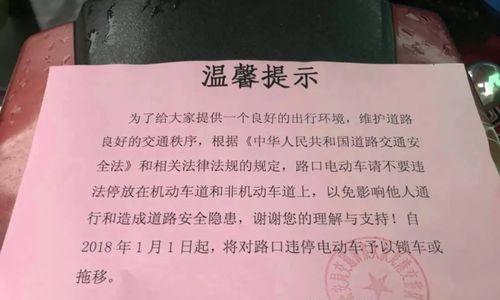 温馨提示
为了给大家提供一个良好的出行环境，维护道路
良好的交通秩序，根据《中华人民共和国道路交通安
全法》和相关法律法规的规定，路口电动车请不要违
法停放在机动车道和非机动车道上，以免影响他人通
行和造成道路安全隐患，谢谢您的理解与支持！自
2018年1月1日起，将对路口违停电动车予以锁车或
拖移。